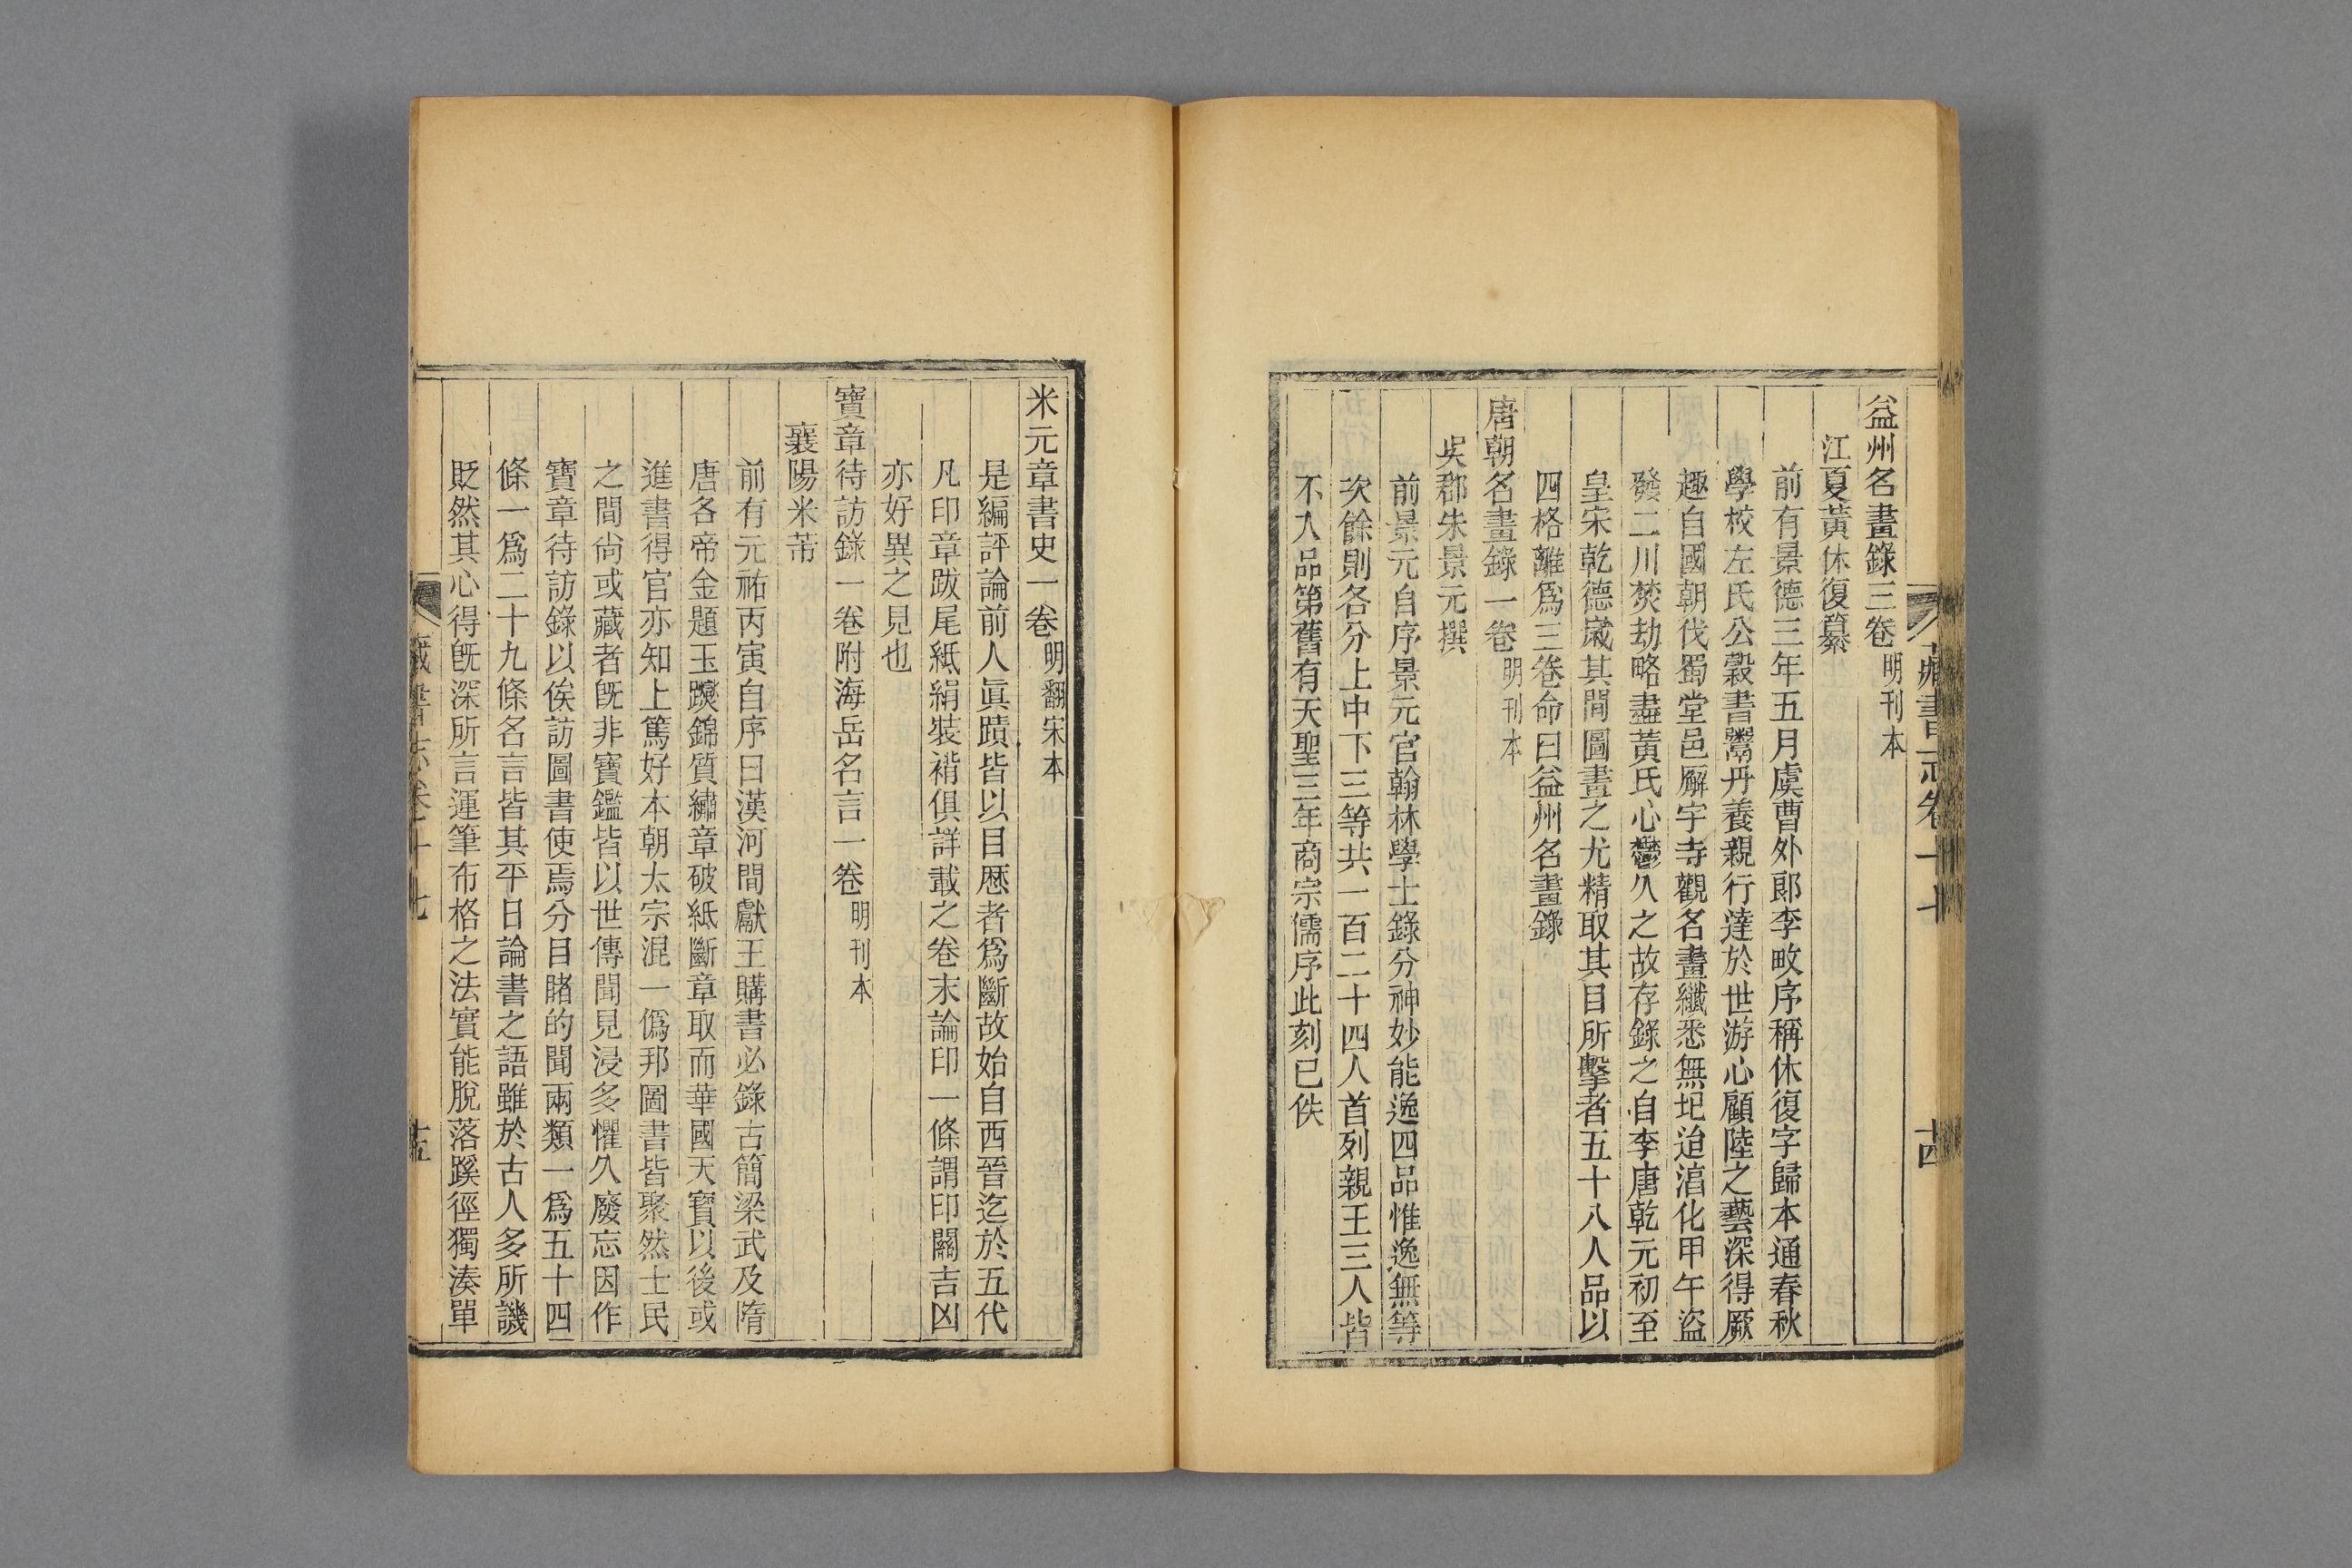 益州名畫錄三卷 明刊本
江夏黃休復纂
前有景德三年五月虞曹外郎李畋序稱休復字歸本通春秋
學校左氏公穀書鬻丹養親行達於世游心顧陸之藝深得厥
趣自國朝伐蜀堂邑廨宇寺觀名畫纖悉無圮迨淯化甲午盜
發二川焚劫略盡黃氏心鬱久之故存錄之自李唐乾元初至
皇宋乾德歲其間圖畫之尤精取其目所擊者五十八人品以
四格離爲三卷命曰益州名畫錄
唐朝名畫錄一卷 明刊本
吳郡朱景元撰
前景元自序景元官翰林學士錄分神妙能逸四品惟逸無等
次餘則各分上中下三等共一百二十四人首列親王三人皆
不入品第舊有天聖三年商宗儒序此刻已佚
藏書志卷十七
十四
米元章書史一卷 明翻宋本
是編評論前人眞蹟皆以目歷者爲斷故始自西晉迄於五代
凡印章跋尾紙絹裝褙俱詳載之卷末論印一條謂印關吉凶
亦好異之見也
寶章待訪錄一卷附海岳名言一卷 明刊本
襄陽米芾
前有元祐丙寅自序曰漢河間獻王購書必錄古簡梁武及隋
唐各帝金題玉躞錦質繡章破紙斷章取而華國天寶以後或
進書得官亦知上篤好本朝太宗混一僞邦圖書皆聚然士民
之間尙或藏者旣非寶鑑皆以世傳聞見浸多懼久廢忘因作
寶章待訪錄以俟訪圖書使焉分目睹的聞兩類一爲五十四
條一爲二十九條名言皆其平日論書之語雖於古人多所譏
貶然其心得旣深所言運筆布格之法實能脫落蹊徑獨湊單
藏書志卷十七
十五